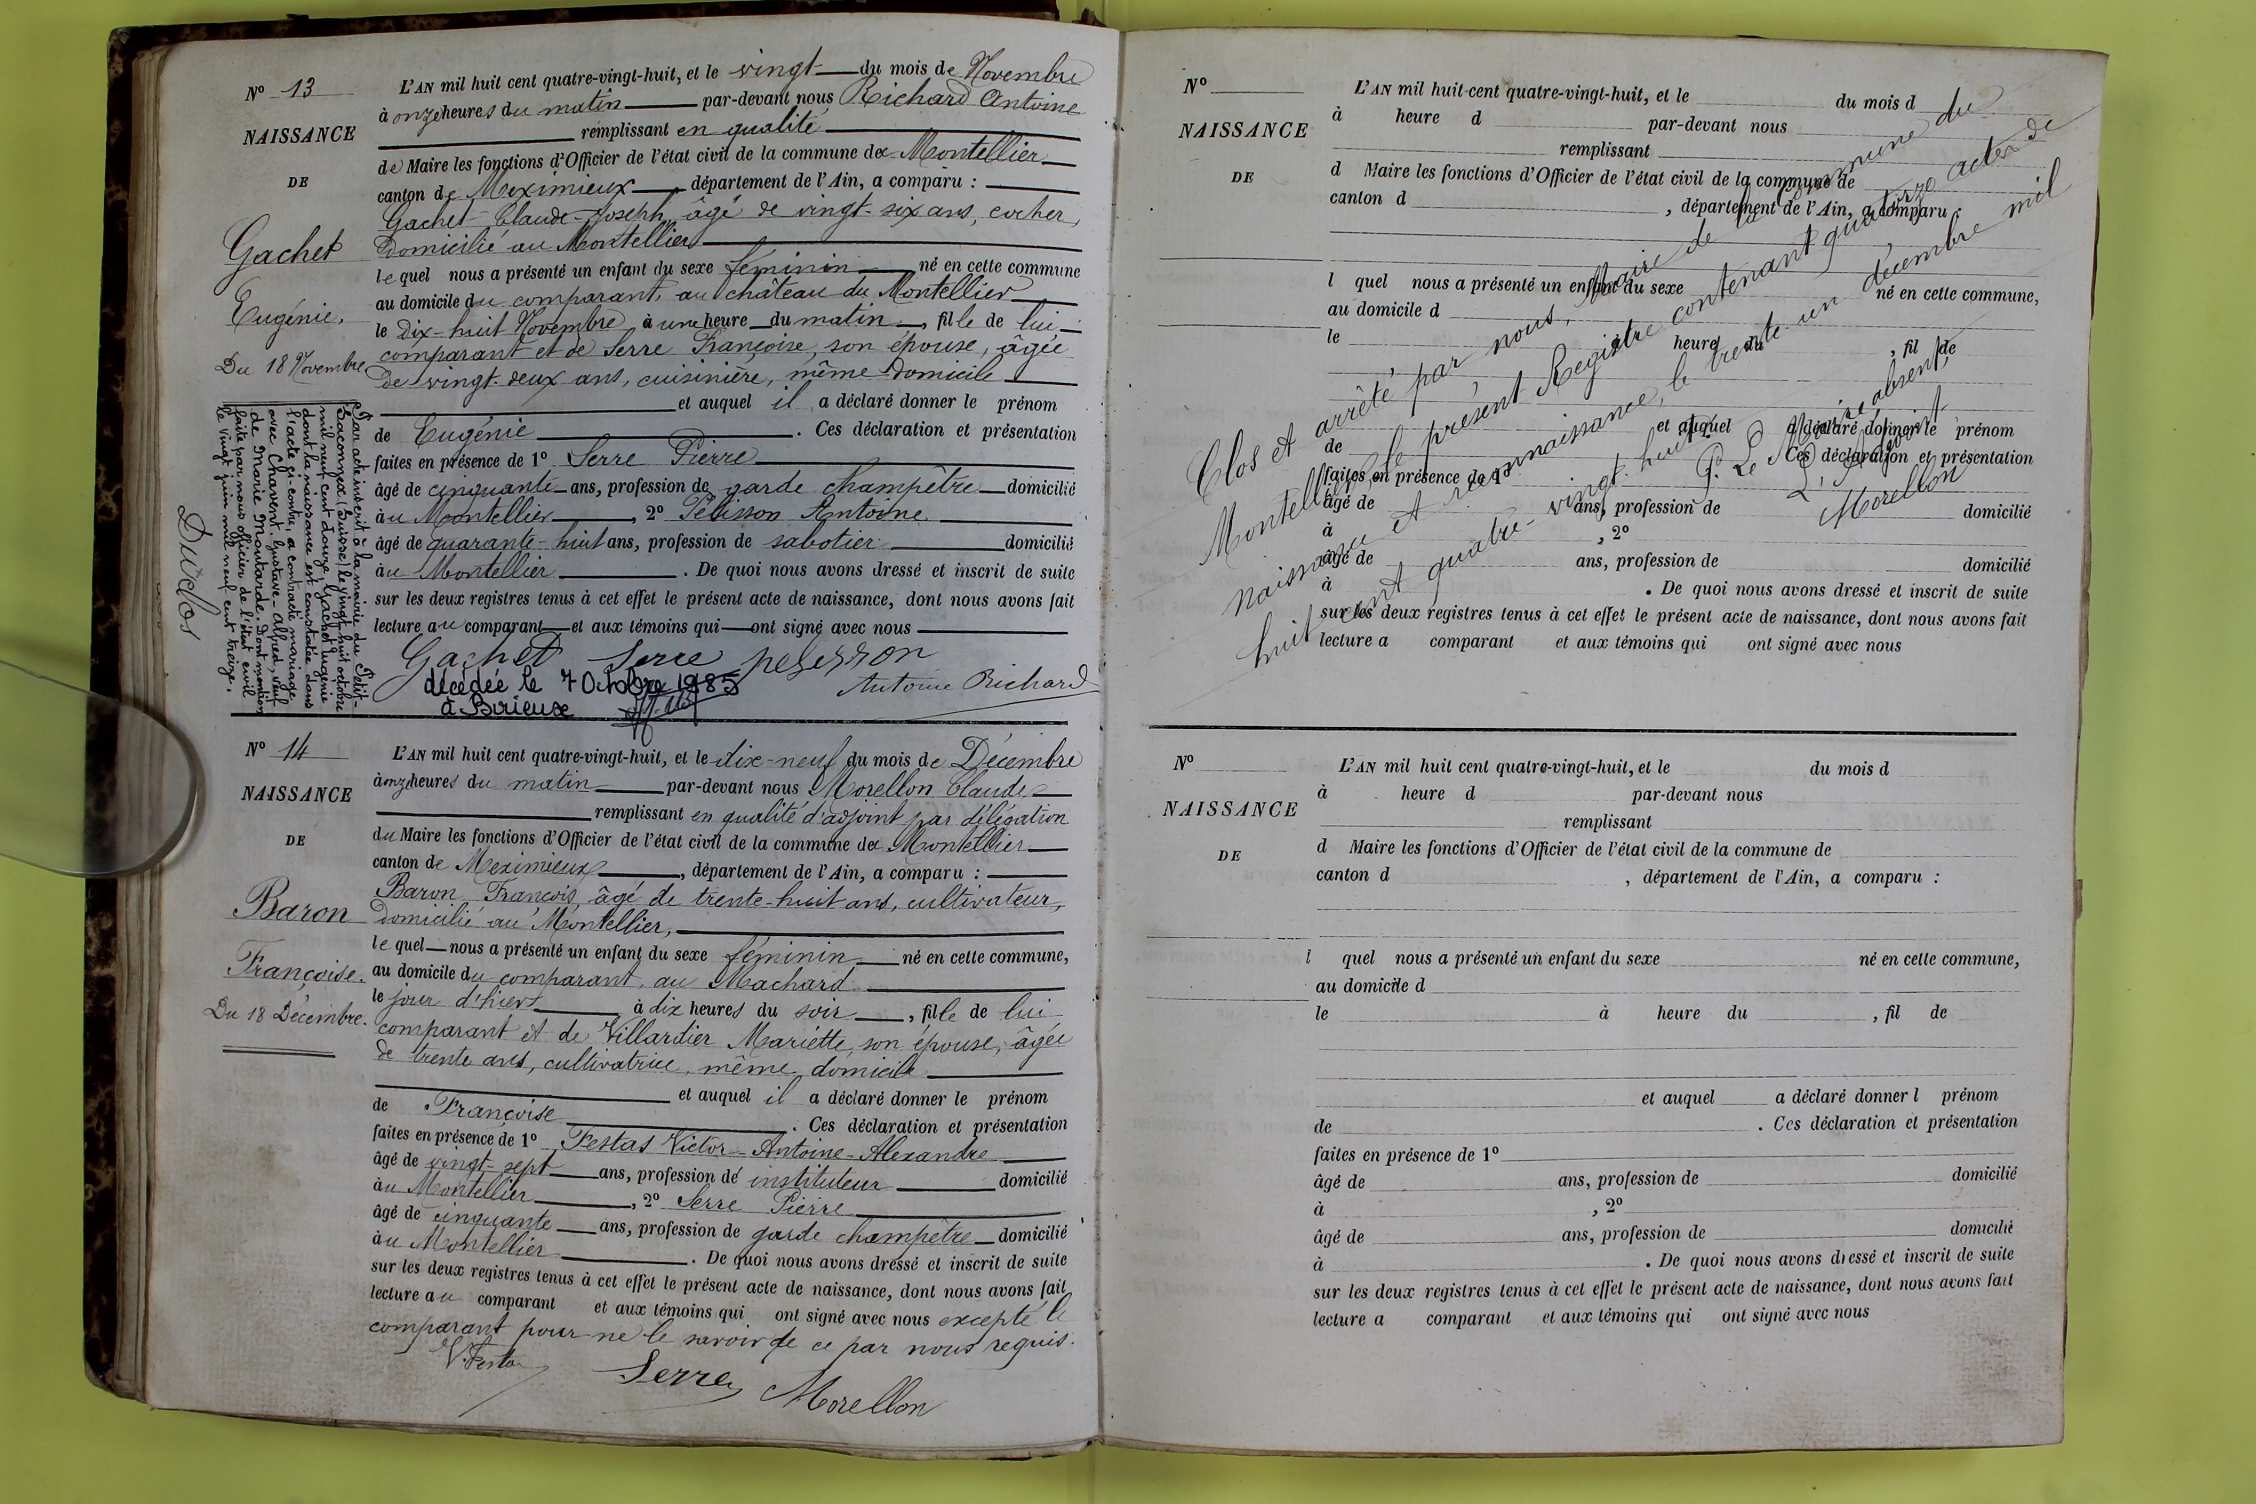 N° 13
NAISSANCE
DE
Gachet
Eugénie.
Du 18 Novembre
L'AN mil huit cent quatre-vingt-huit, et le vingt du mois de Novembre
à onze heures du matin par-devant nous Richard Antoine
remplissant en qualité
de Maire les fonctions d'Officier de l'état civil de la commune de Montellier
canton de Meximieux département de l'Ain, a comparu :
Gachet Claude-Joseph, âgé de vingt-six ans, cocher,
domicilié au Montellier
lequel nous a présenté un enfant du sexe féminin né en cette commune
au domicile du comparant, au château du Montellier
le dix-huit Novembre à une heure du matin, fille de lui
comparant et de Serre Françoise, son épouse, âgée
de vingt-deux ans, cuisinière, même domicile
et auquel il a déclaré donner le prénom
de Eugénie. Ces déclaration et présentation
faites en présence de 1° Serre Pierre
âgé de cinquante ans, profession de garde champêtre domicilié
au Montellier, 2° Pélisson Antoine
âgé de quarante-huit ans, profession de sabotier domicilié
au Montellier. De quoi nous avons dressé et inscrit de suite
sur les deux registres tenus à cet effet le présent acte de naissance, dont nous avons fait
lecture au comparant et aux témoins qui ont signé avec nous
Gachet Serre pelisson
Antoine Richard
décédée le 7 Octobre 1985
à Birieux
Par acte inscrit à la mairie du Petit-
Saconnex (Suisse) le vingt huit octobre
mil neuf cent douze, Gachet Eugénie
dont la naissance est constatée dans
l'acte ci-contre, a contracté mariage
avec Charvent Gustave-Alfred, veuf
de Marie Moutarde. dont mention
faite par nous officier de l'état civil
le vingt juin mil neuf cent treize.
Duclos
N° 14
NAISSANCE
DE
Baron
Françoise.
Du 18 Décembre.
L'AN mil huit cent quatre-vingt-huit, et le dix-neuf du mois de Décembre
à onze heures du matin par-devant nous Morellon Claude
remplissant en qualité d'adjoint par délégation
du Maire les fonctions d'Officier de l'état civil de la commune de Montellier
canton de Meximieux, département de l'Ain, a comparu :
Baron François, âgé de trente-huit ans, cultivateur,
domicilié au Montellier,
lequel nous a présenté un enfant du sexe féminin né en cette commune,
au domicile du comparant, au Machard
le jour d'hier à dix heures du soir, fille de lui
comparant et de Villardier Mariette, son épouse, âgée
de trente ans, cultivatrice, même domicile
et auquel il a déclaré donner le prénom
de Françoise. Ces déclaration et présentation
faites en présence de 1° Festas Victor-Antoine-Alexandre
âgé de vingt-sept ans, profession de instituteur domicilié
au Montellier, 2° Serre Pierre
âgé de cinquante ans, profession de garde champêtre domicilié
au Montellier. De quoi nous avons dressé et inscrit de suite
sur les deux registres tenus à cet effet le présent acte de naissance, dont nous avons fait
lecture au comparant et aux témoins qui ont signé avec nous excepté le
comparant pour ne le savoir de ce par nous requis.
V. Festas Serre Morellon
N°
NAISSANCE
DE
L'AN mil huit cent quatre-vingt-huit, et le du mois d
à heure d par-devant nous
remplissant
d Maire les fonctions d'Officier de l'état civil de la commune de
canton d , département de l'Ain, a comparu :
l quel nous a présenté un enfant du sexe né en cette commune,
au domicile d
le à heure du , fil de
et auquel a déclaré donner le prénom
de Ces déclaration et présentation
faites en présence de 1°
âgé de ans, profession de domicilié
à , 2°
âgé de ans, profession de domicilié
à . De quoi nous avons dressé et inscrit de suite
sur les deux registres tenus à cet effet le présent acte de naissance, dont nous avons fait
lecture a comparant et aux témoins qui ont signé avec nous
Clos et arrêté par nous, Maire de la commune du
Montellier, le présent Registre contenant quatorze actes de
naissance et reconnaissance, le trente-un décembre mil
huit cent quatre-vingt-huit.
P. Le Maire absent,
L'adjoint
Morellon
N°
NAISSANCE
DE
L'AN mil huit cent quatre-vingt-huit, et le du mois d
à heure d par-devant nous
remplissant
d Maire les fonctions d'Officier de l'état civil de la commune de
canton d , département de l'Ain, a comparu :
l quel nous a présenté un enfant du sexe né en cette commune,
au domicile d
le à heure du , fil de
et auquel a déclaré donner l prénom
de . Ces déclaration et présentation
faites en présence de 1°
âgé de ans, profession de domicilié
à , 2°
âgé de ans, profession de domicilié
à . De quoi nous avons dressé et inscrit de suite
sur les deux registres tenus à cet effet le présent acte de naissance, dont nous avons fait
lecture a comparant et aux témoins qui ont signé avec nous